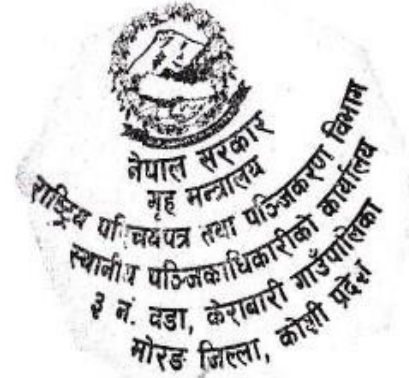 नेपाल सरकार
गृह मन्त्रालय
राष्ट्रिय परिचयपत्र तथा पञ्जिकरण विभाग
स्थानीय पञ्जिकाधिकारीको कार्यालय
३ नं. वडा, केराबारी गाउँपालिका
मोरङ जिल्ला, कोशी प्रदेश